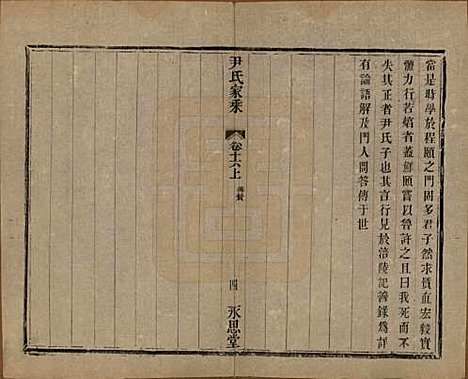 當是時學於程頤之門固多君子然求質直宏毅實
體力行若焞者蓋鮮頤嘗以魯許之且曰我死而不
失其正者尹氏子也其言行見於涪陵記善錄爲詳
有論語解及門人問答傳于世
尹氏家乘
卷十六上
四
永思堂